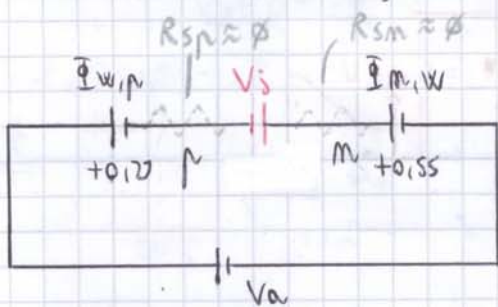 Rsp ≈ ø Rsn ≈ ø
Φw,p Vj Φn,w
+0,2V p n +0,55
Va